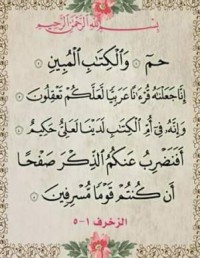 بسم الله الرحمن الرحيم
حمٓ ۝ وَٱلْكِتَٰبِ ٱلْمُبِينِ ۝
إِنَّا جَعَلْنَٰهُ قُرْءَٰنًا عَرَبِيًّا لَّعَلَّكُمْ تَعْقِلُونَ ۝
وَإِنَّهُۥ فِىٓ أُمِّ ٱلْكِتَٰبِ لَدَيْنَا لَعَلِىٌّ حَكِيمٌ ۝
أَفَنَضْرِبُ عَنكُمُ ٱلذِّكْرَ صَفْحًا
أَن كُنتُمْ قَوْمًا مُّسْرِفِينَ ۝
الزخرف ١-٥